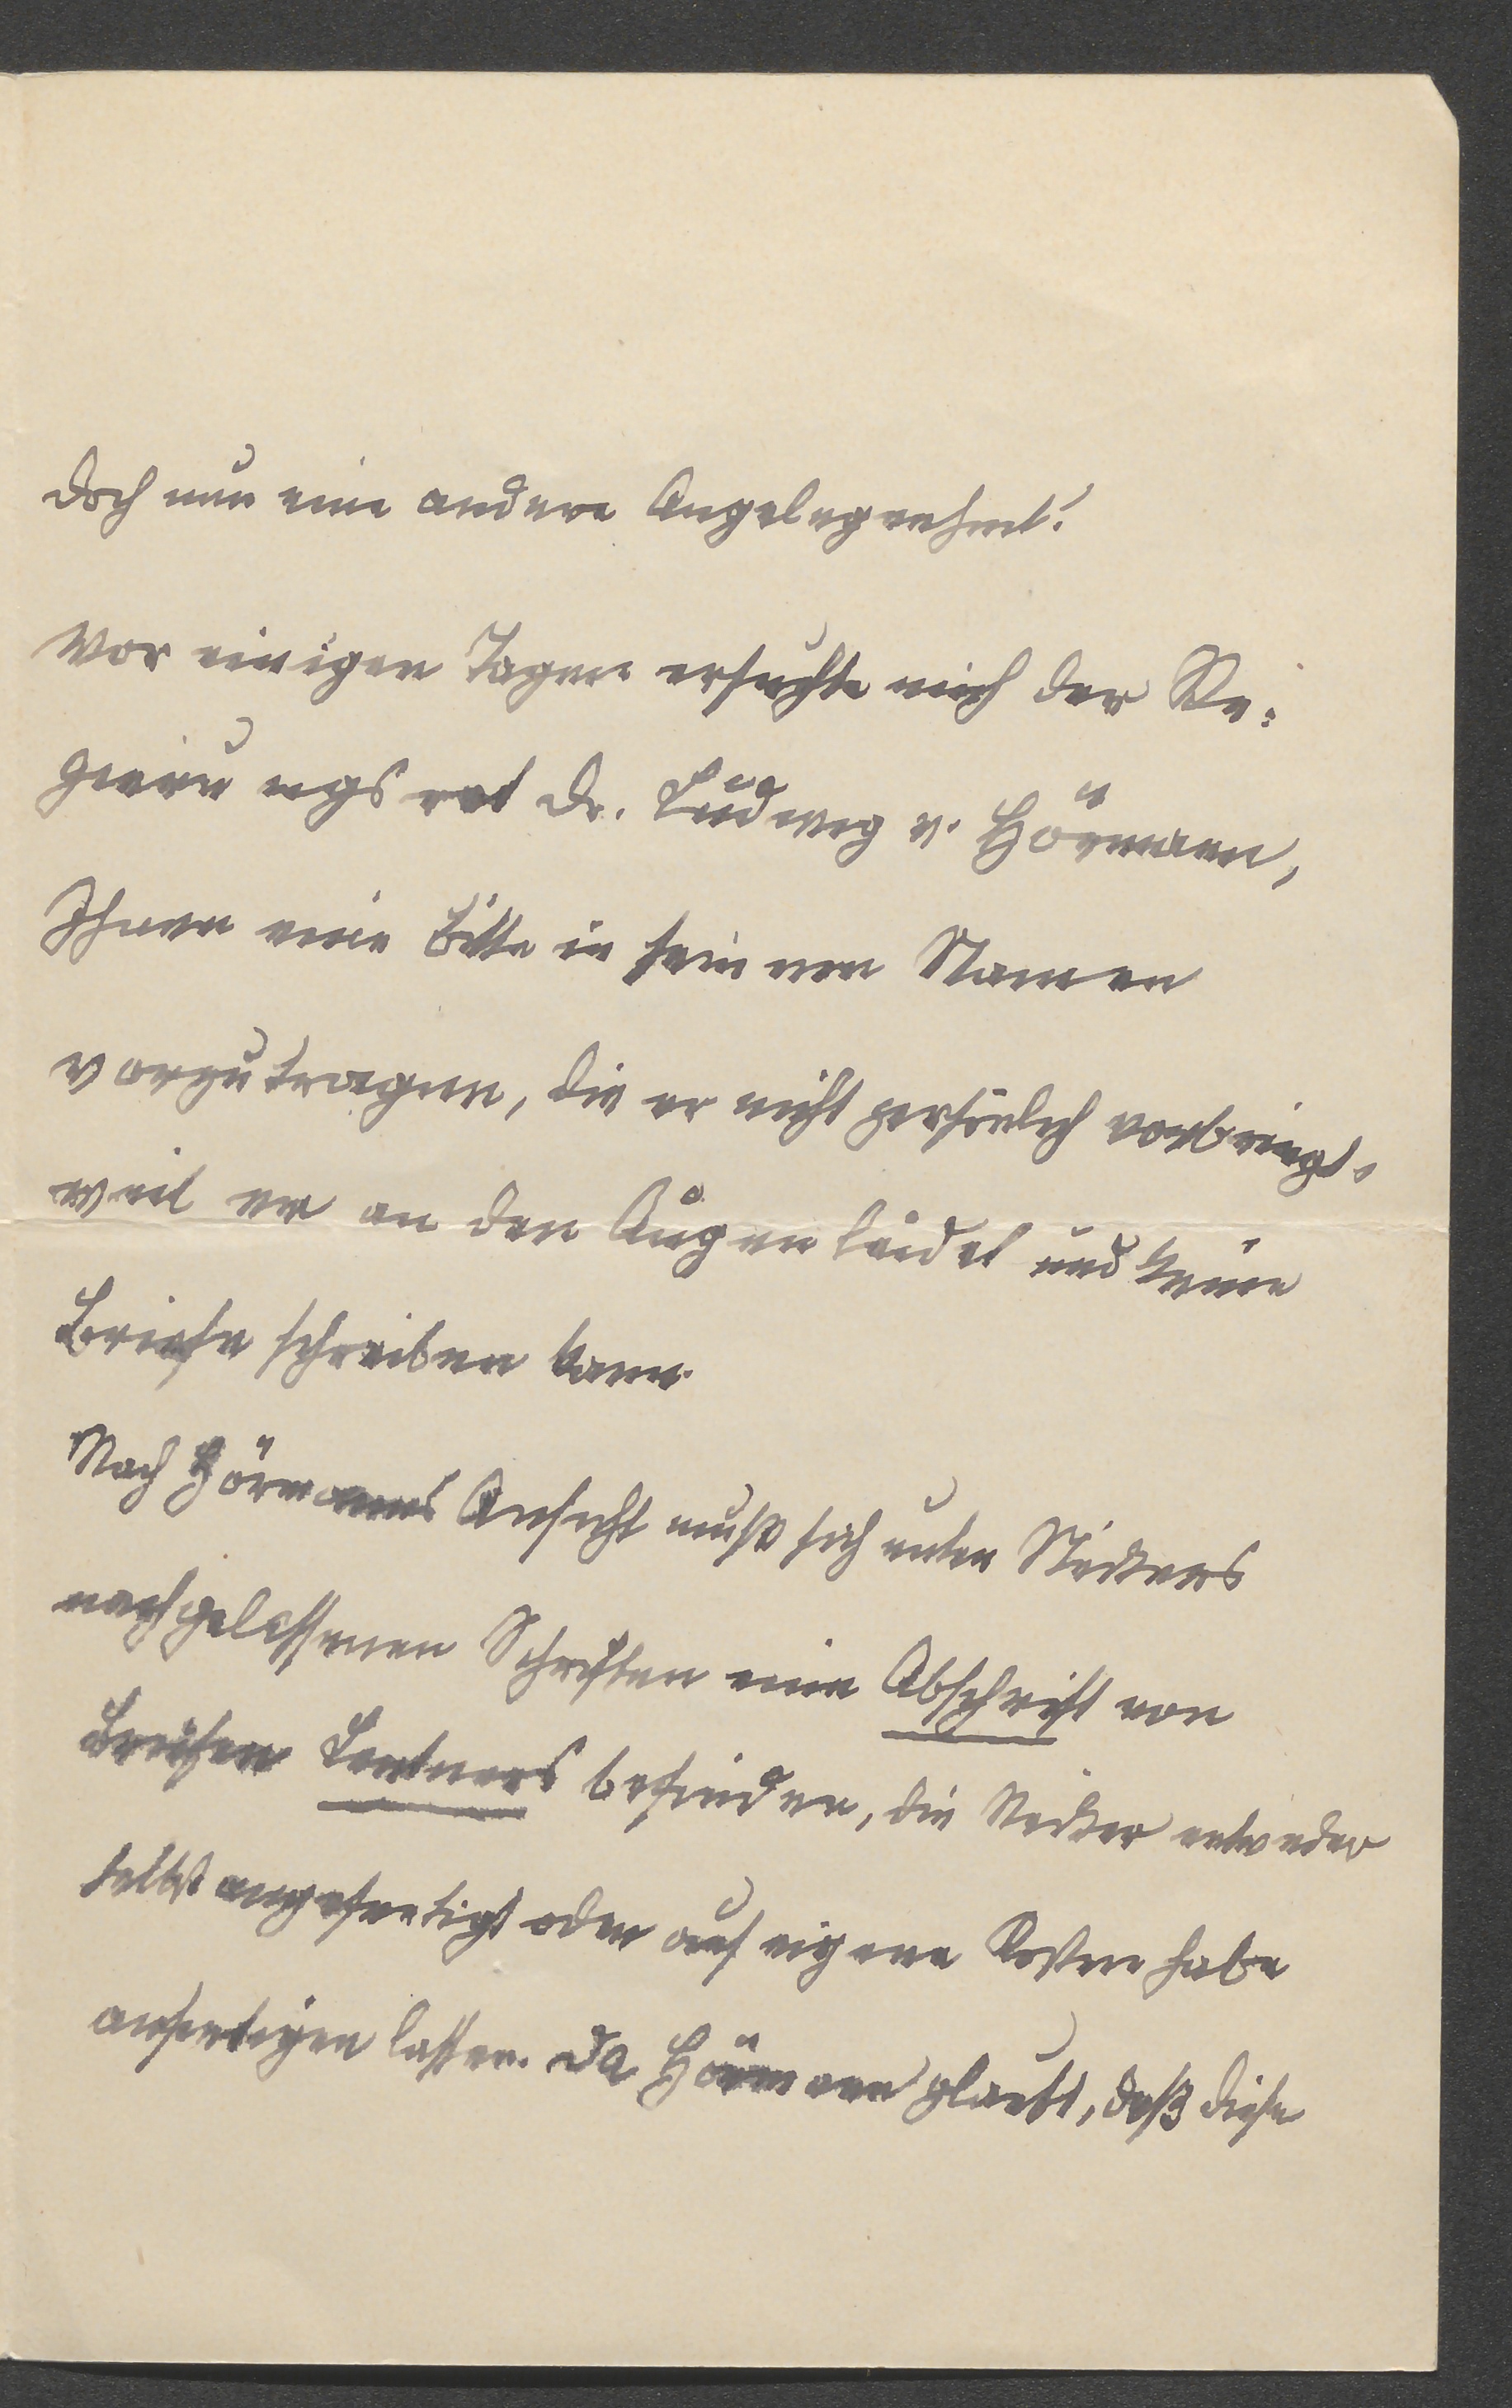 Doch nun eine andere Angelegenheit!
Vor einigen Tagen ersuchte mich der Re-
gierungsrat Dr. Ludwig v. Hörmann,
Ihnen eine Bitte in seinem Namen
vorzutragen, die er nicht persönlich vorbringt,
weil er an den Augen leidet und keine
Briefe schreiben kann.
Nach Hörmanns Ansicht muß sich unter
nachgelassenen Schriften eine Abschrift von
Briefen Lentners befinden, die entweder
selbst angefertigt oder auf eigene Kosten habe
anfertigen lassen. Da Hörmann glaubt, daß diese